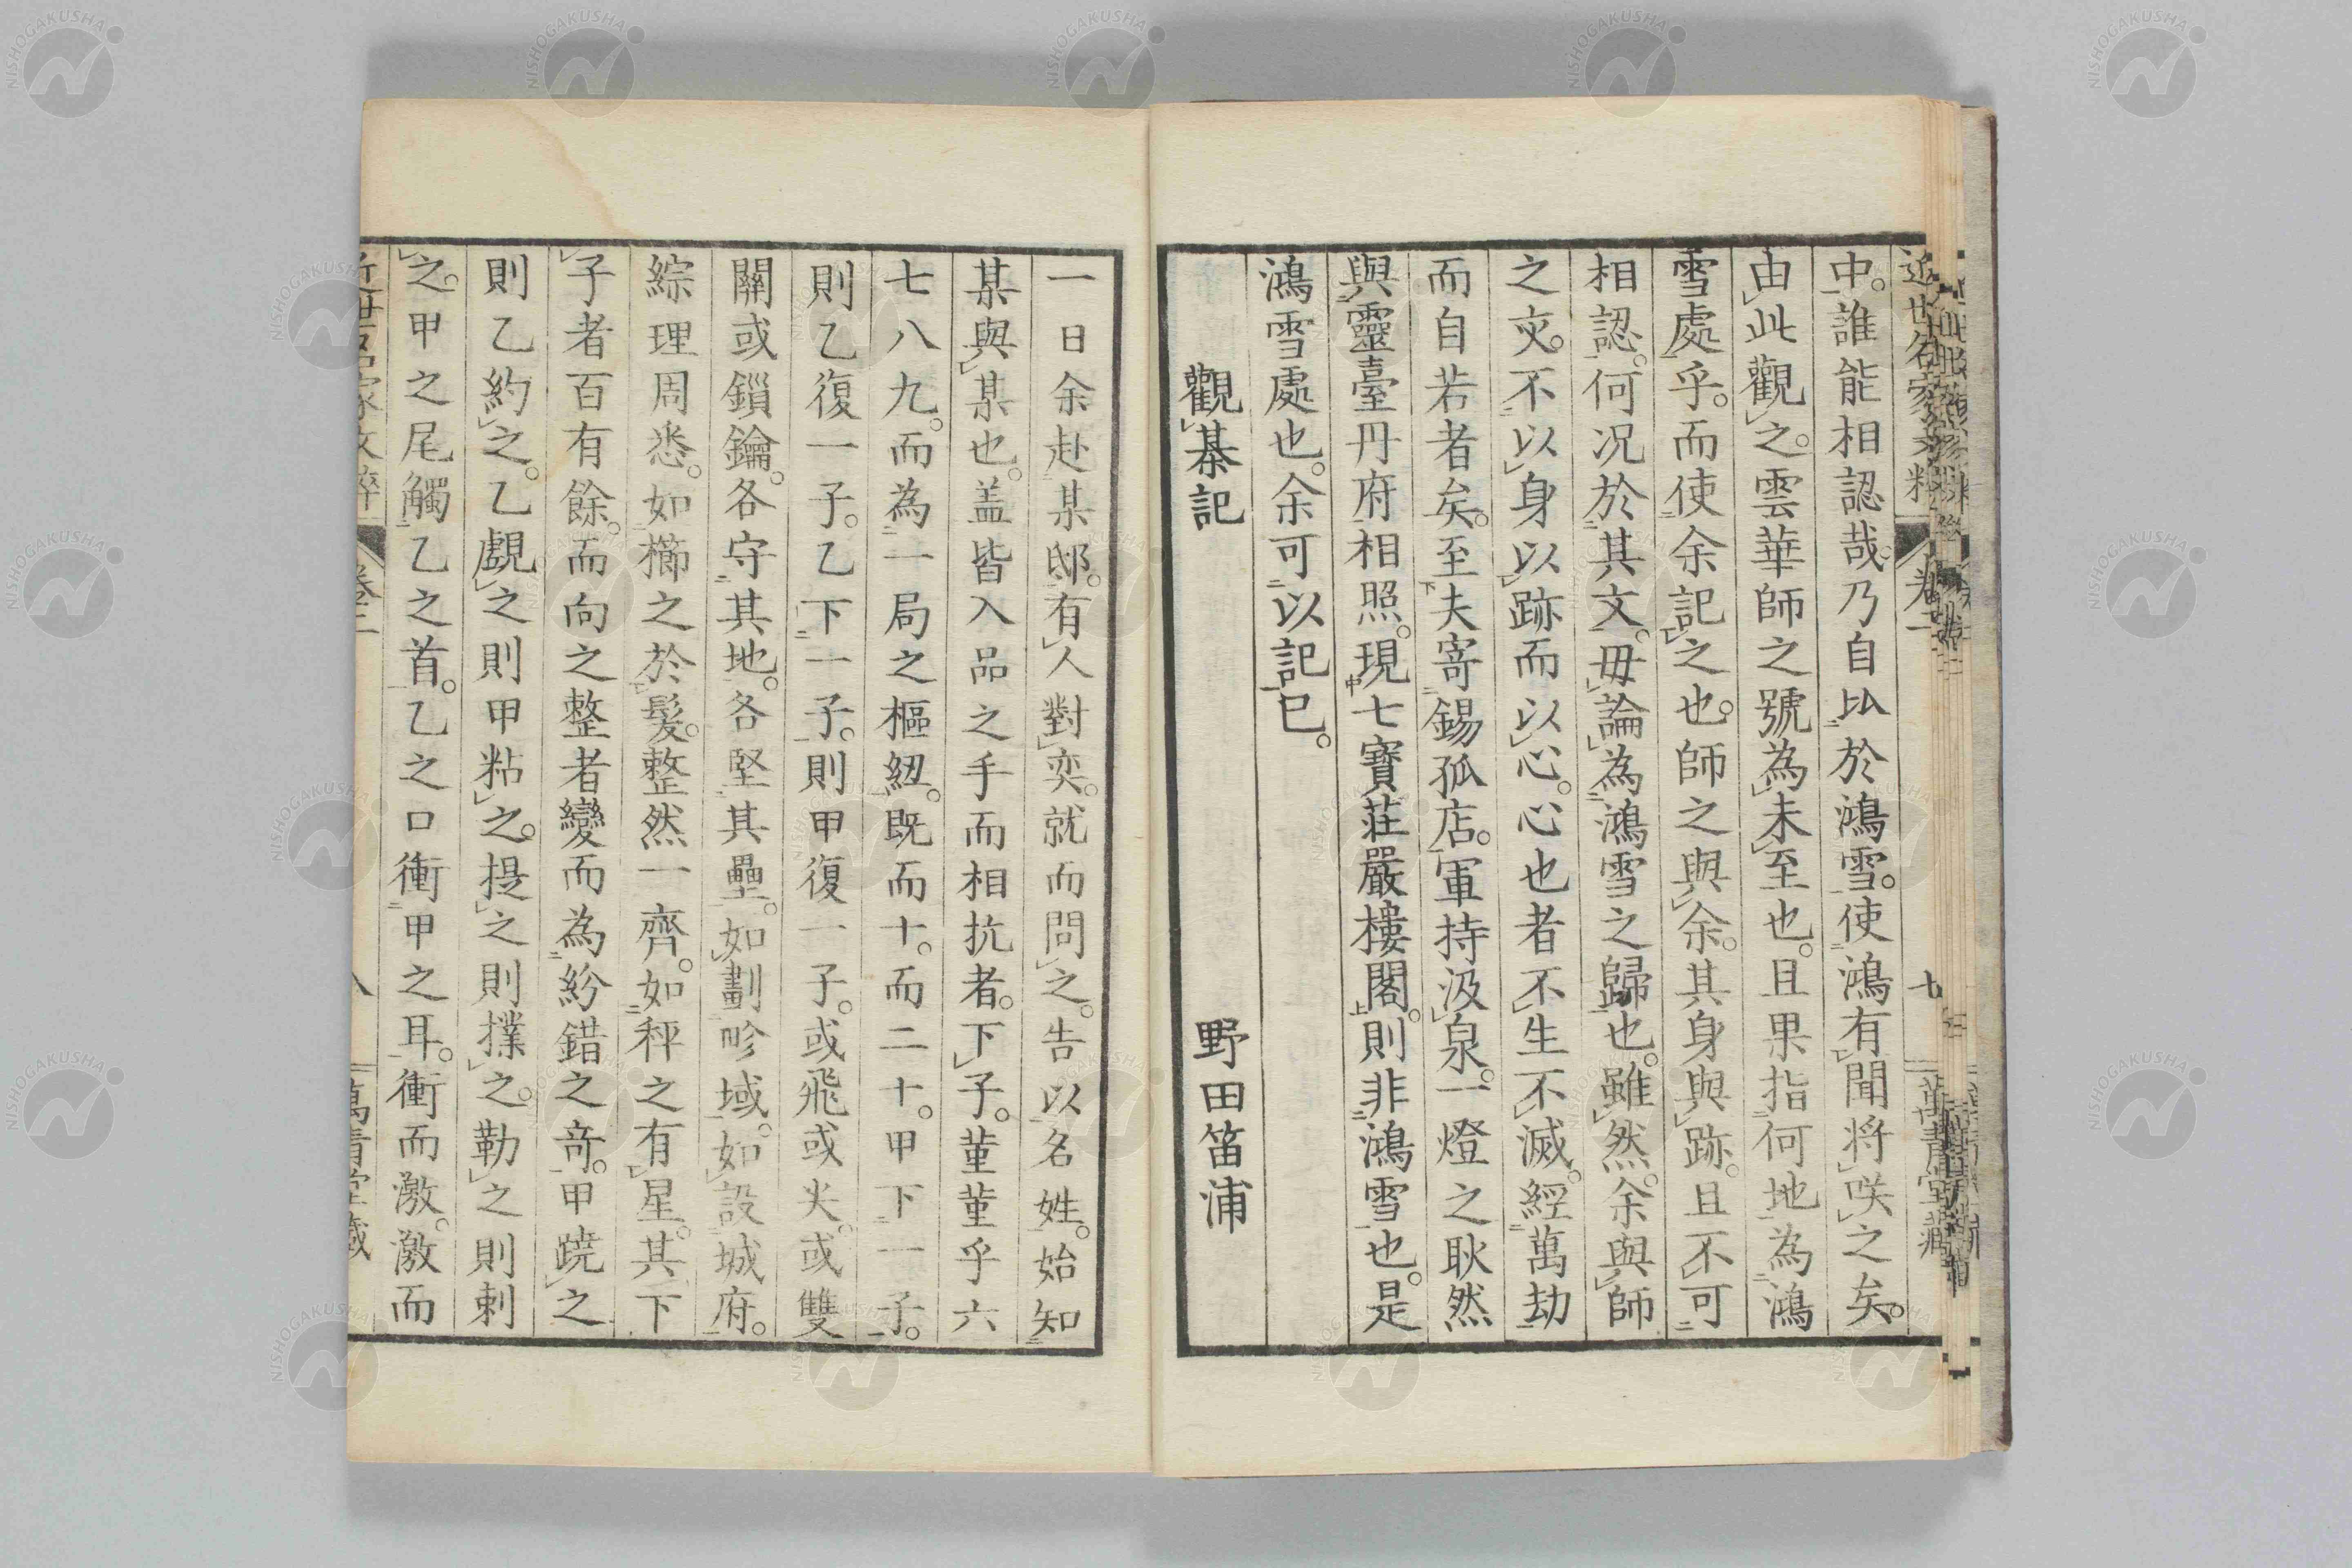 中。誰能相認哉。乃自比於鴻雪。使鴻有聞將咲之矣。
由此觀之。雲華師之號為未至也。且果指何地為鴻
雪處乎。而使余記之也。師之與余。其身與跡。且不可
相認。何况於其文。毋論為鴻雪之歸也。雖然。余與師
之交。不以身以跡而以心。心也者不生不滅。經萬劫
而自若者矣。至夫寄錫孤店。軍持汲泉。一燈之耿然
與靈臺丹府相照。現七寶莊嚴樓閣。則非鴻雪也。是
鴻雪處也。余可以記已。
觀棊記 野田笛浦
一日余赴某邸。有人對奕。就而問之。告以名姓。始知
某與某也。盖皆入品之手而相抗者。下子。菫菫乎六
七八九。而為一局之樞紐。既而十。而二十。甲下一子。
則乙復一子。乙下一子。則甲復一子。或飛或尖。或雙
關或鎖鑰。各守其地。各堅其壘。如劃畛域。如設城府。
綜理周悉。如櫛之於髮。整然一齊。如秤之有星。其下
子者百有餘。而向之整者變而為紛錯之奇。甲蹺之
則乙約之。乙覷之則甲粘之。提之則撲之。勒之則刺
之。甲之尾觸乙之首。乙之口衝甲之耳。衝而激。激而
近世名家文粹 卷二 八 萬青堂藏
近世名家文粹 七 萬青堂藏
NISHOGAKUSHA